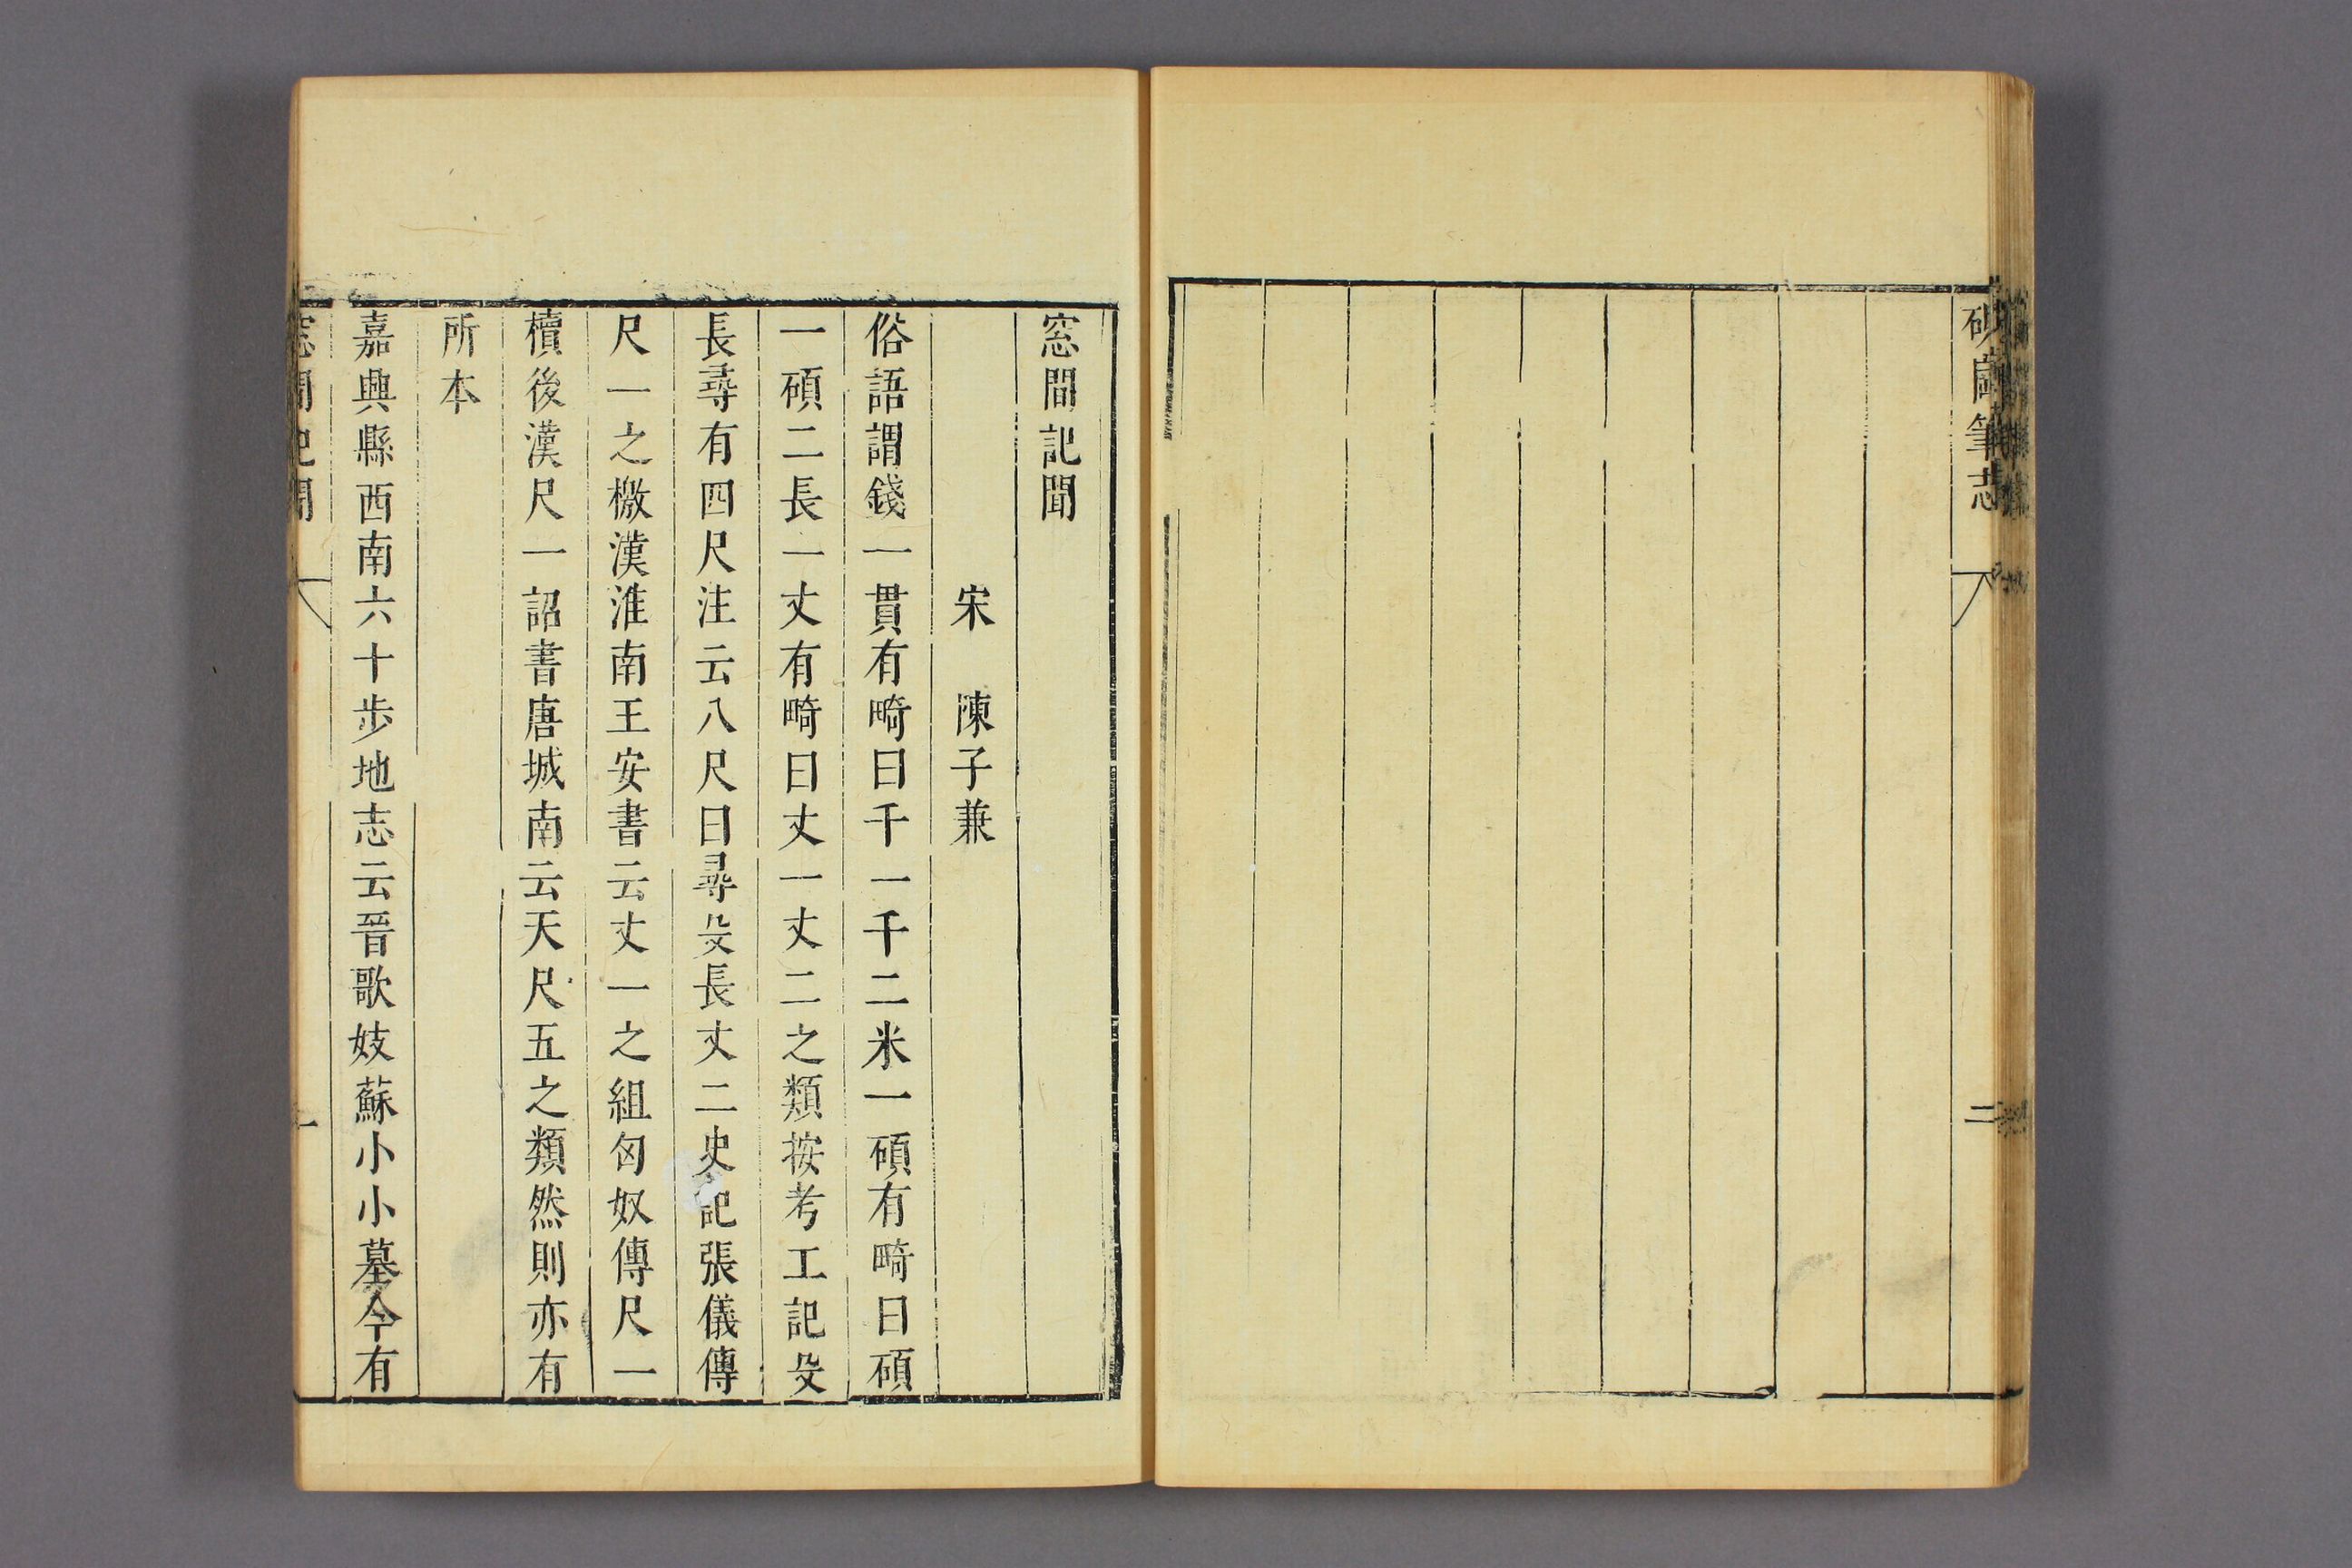 硏崗筆志
二
窓間記聞
宋　陳子兼
俗語謂錢一貫有畸曰千一千二米一碩有畸曰碩
一碩二長一丈有畸曰丈一丈二之類按考工記殳
長尋有四尺注云八尺曰尋殳長丈二史記張儀傳
尺一之檄漢淮南王安書云丈一之組匈奴傳尺一
櫝後漢尺一詔書唐城南云天尺五之類然則亦有
所本
嘉興縣西南六十步地志云晉歌妓蘇小小墓今有
窓間記聞
一